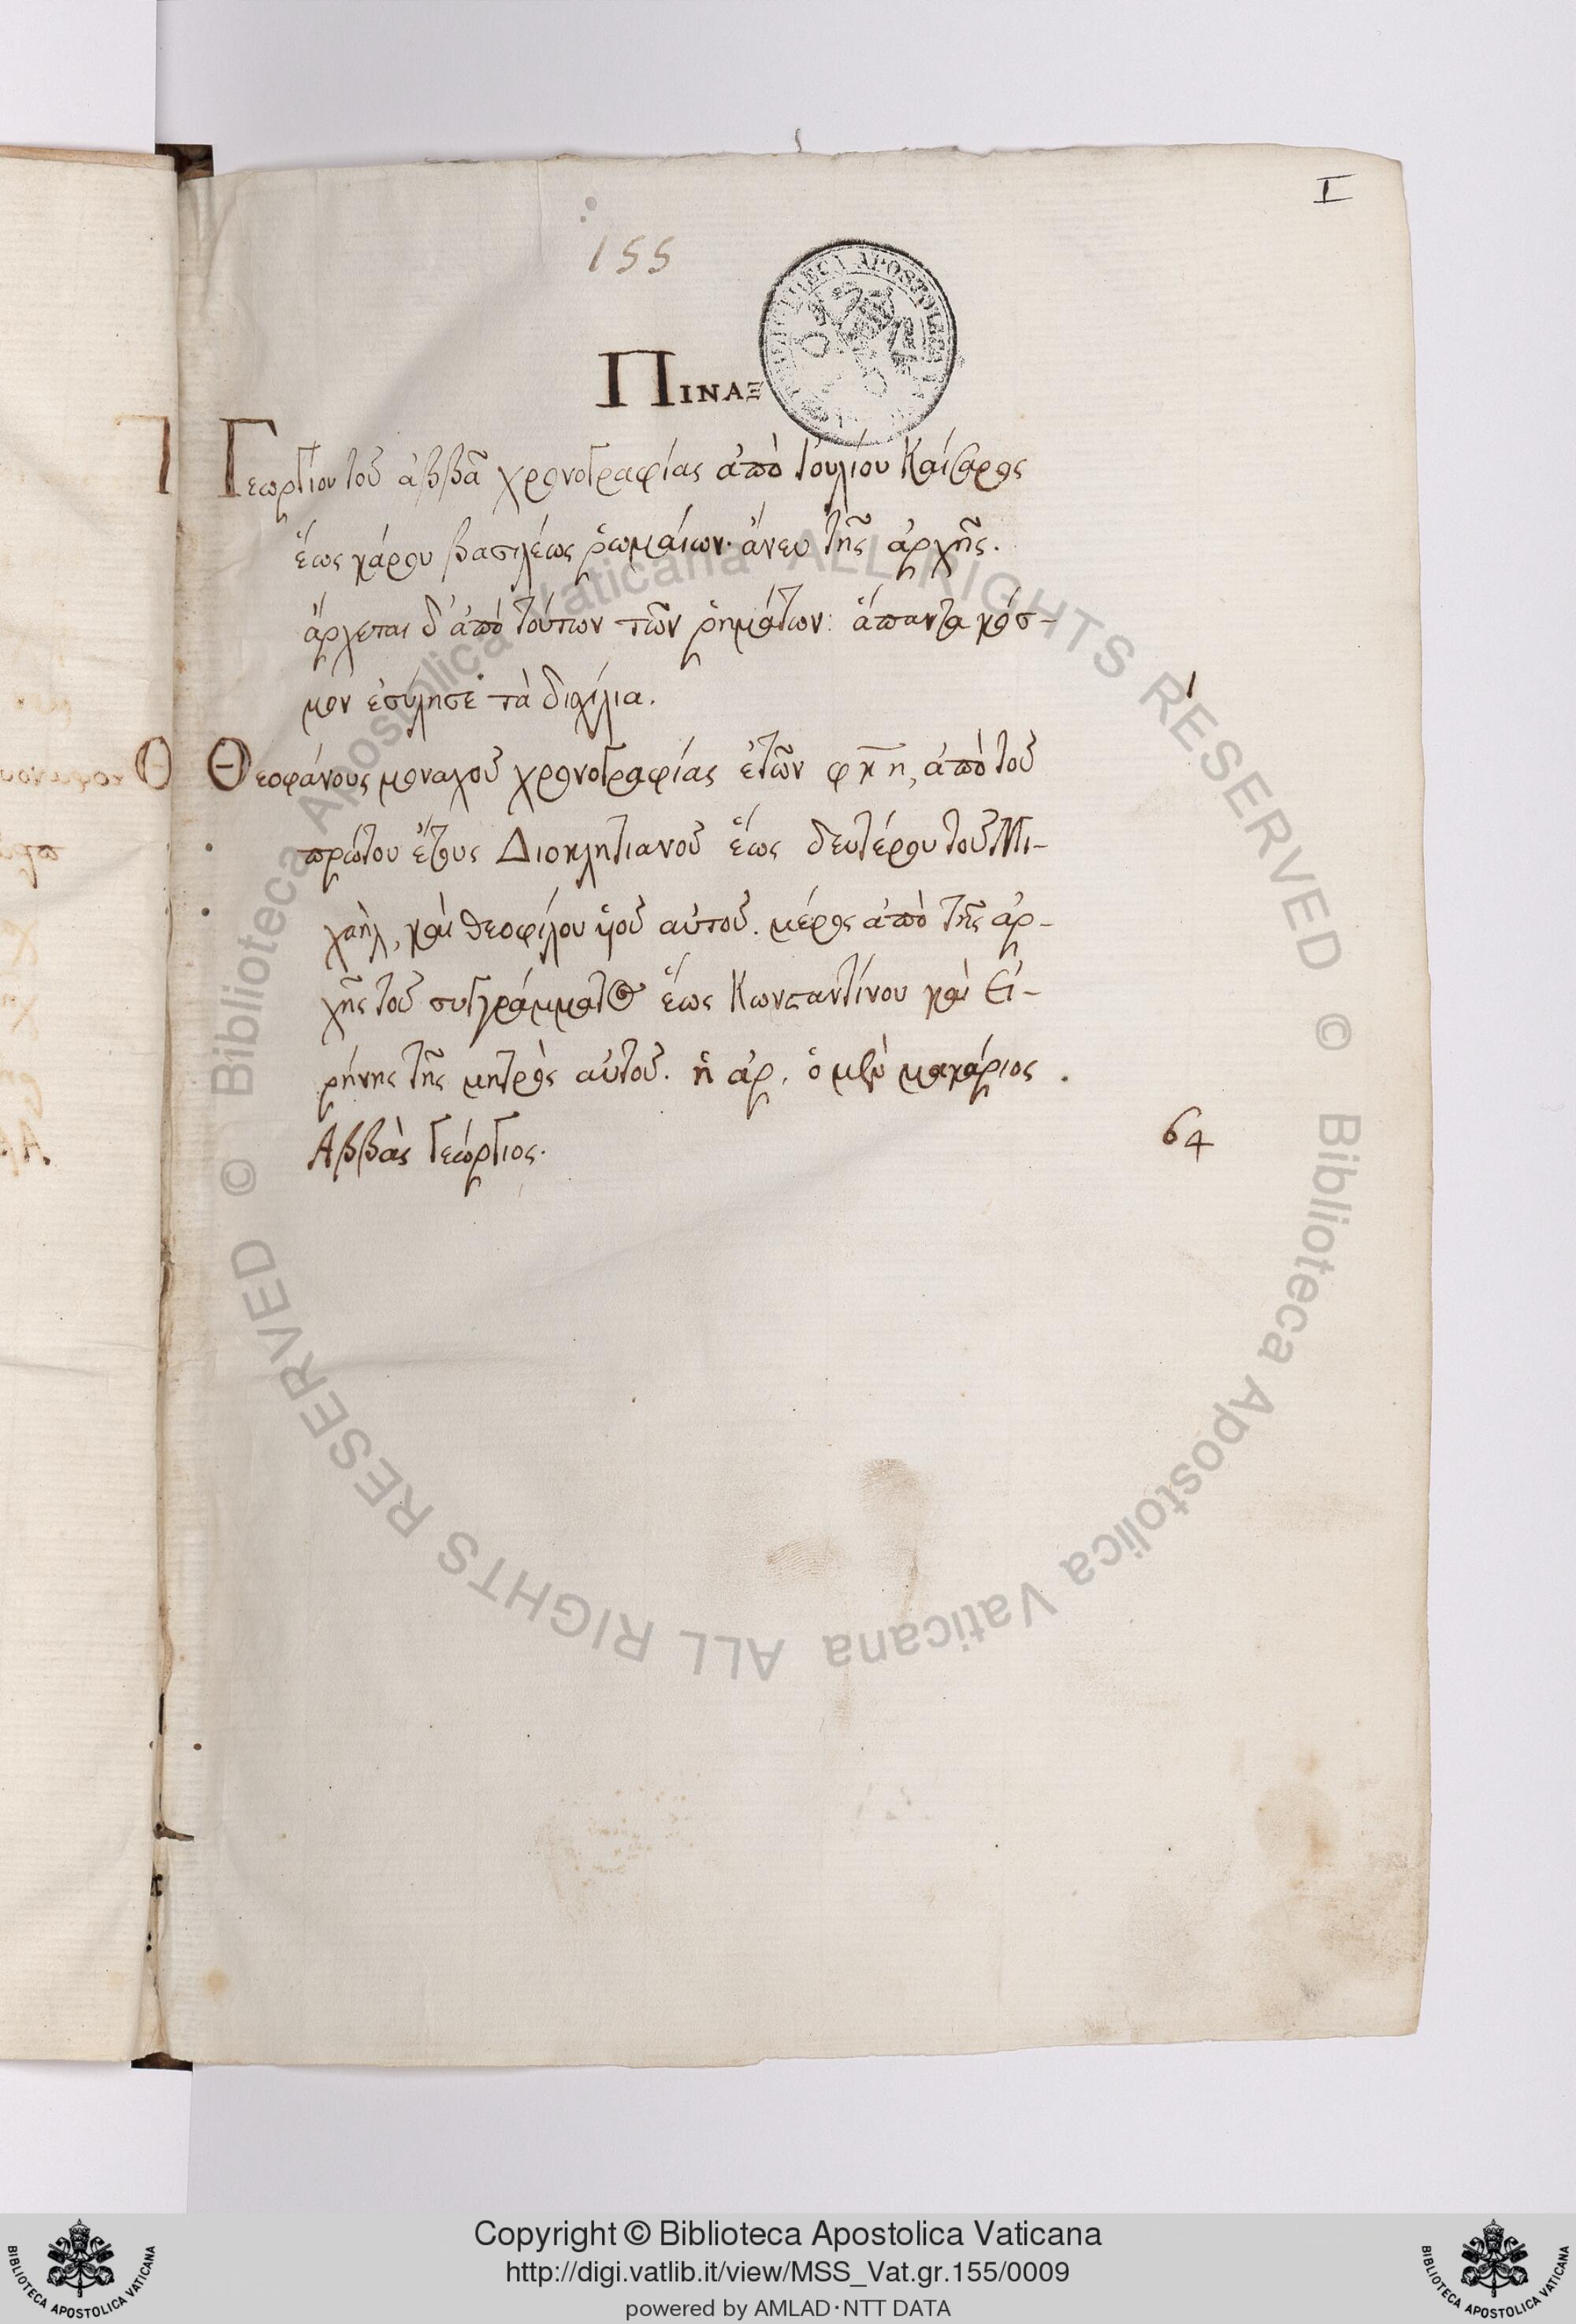 I
155
ΠΙΝΑΞ
Γεωργίου τοῦ ἀββᾶ χρονογραφίας ἀπὸ Ἰουλίου Καίσαρος
ἕως κάρου βασιλέως ῥωμαίων· ἄνευ τῆς ἀρχῆς.
ἄρχεται δ' ἀπὸ τούτων τῶν ῥημάτων: ἅπαντα κόσ-
μον ἐσύλησε τὰ διχίλια.
1
Θεοφάνους μοναχοῦ χρονογραφίας ἐτῶν φκη, ἀπὸ τοῦ
πρώτου ἔτους Διοκλητιανοῦ ἕως δευτέρου τοῦ Μι-
χαὴλ, καὶ θεοφίλου ὑιοῦ αὐτοῦ. μέρος ἀπὸ τῆς ἀρ-
χῆς τοῦ συγγράμματος ἕως Κωνσταντίνου καὶ Εἰ-
ρήνης τῆς μητρὸς αὐτοῦ. ἡ ἀρ. ὁ μὲν μακάριος
Ἀββὰς Γεώργιος.
64
Copyright © Biblioteca Apostolica Vaticana
http://digi.vatlib.it/view/MSS_Vat.gr.155/0009
powered by AMLAD·NTT DATA
BIBLIOTECA APOSTOLICA VATICANA
BIBLIOTECA APOSTOLICA VATICANA
© Biblioteca Apostolica Vaticana ALL RIGHTS RESERVED © Biblioteca Apostolica Vaticana ALL RIGHTS RESERVED